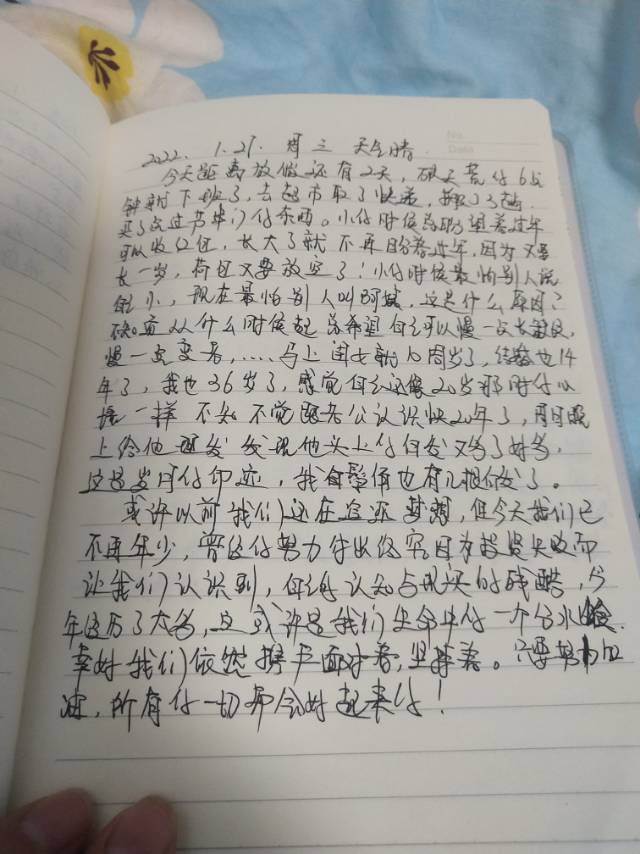 No.
Date
2022. 1.27. 周三 天气晴
今天距离放假还有2天，破天荒的6点
钟就下班了，去超市取了快递，
买了点过节串门的东西。小的时候总盼望着过年
可以收红包，长大了就不再盼着过年，因为又要
长一岁，荷包又要放空了！小的时候最怕别人说
自己小，现在最怕别人叫阿姨，这是什么原因？
不知道从什么时候起总希望自己可以慢一点长岁数，
慢一点变老，....马上闺女就10周岁了，结婚也14
年了，我也36岁了，感觉自己还像20岁那时的心
境一样 不知不觉跟老公认识快20年了，周日晚
上给他理发 发现他头上的白发又多了好多，
这是岁月的印迹，我自己鬓角也有几根白发了。
或许以前我们还在追逐梦想，但今天我们已
不再年少，曾经的努力付出终究因为投资失败而
让我们认识到，自己的认知与现实的残酷，今
年经历了太多，这或许是我们生命中的一个分水岭
幸好我们依然携手面对着，坚持着。只要努力加
油，所有的一切都会好起来的！